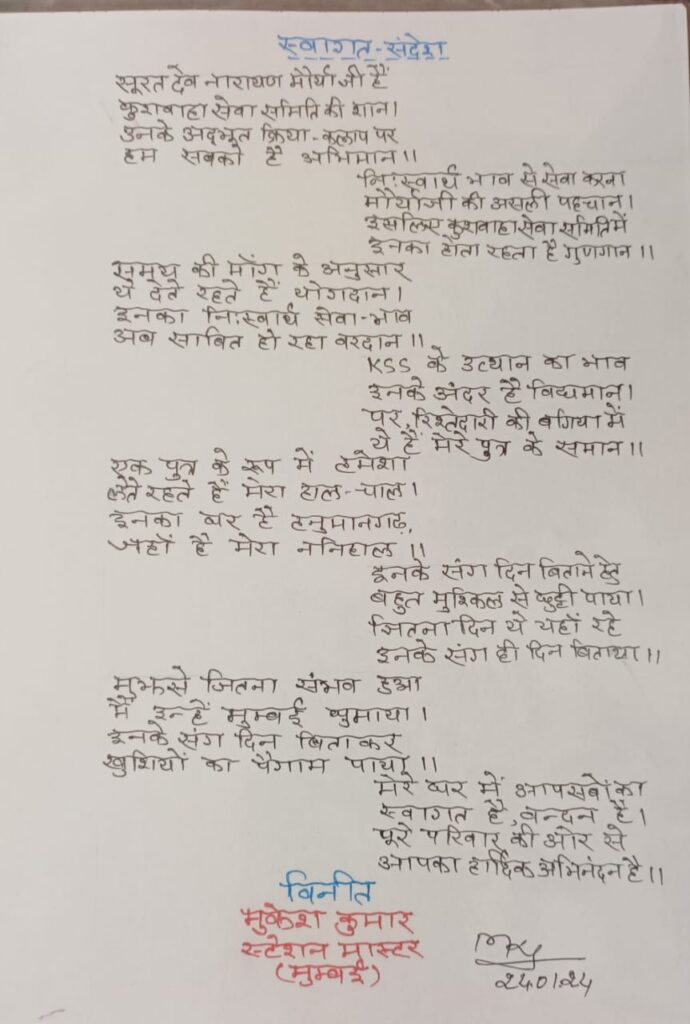 स्वागत-संदेश
सूरत देव नारायण मौर्या जी हैं
कुशवाहा सेवा समिति की शान।
इनके अद्भूत क्रिया-कलाप पर
हम सबको है अभिमान॥
निःस्वार्थ भाव से सेवा करना
मौर्याजी की असली पहचान।
इसलिए कुशवाहा सेवा समिति में
इनका होता रहता है गुणगान॥
समय की माँग के अनुसार
ये देते रहते हैं योगदान।
इनका निःस्वार्थ सेवा-भाव
अब साबित हो रहा वरदान॥
KSS के उत्थान का भाव
इनके अंदर है विद्यमान।
पर, रिश्तेदारी की बगिया में
ये हैं मेरे पुत्र के समान॥
एक पुत्र के रूप में हमेशा
लेते रहते हैं मेरा हाल-चाल।
इनका घर है हनुमानगढ़,
जहाँ है मेरा ननिहाल॥
इनके संग दिन बिताने हेतु
बहुत मुश्किल से छुट्टी पाया।
जितना दिन ये यहाँ रहे
इनके संग ही दिन बिताया॥
मुझसे जितना संभव हुआ
मैं इन्हें मुम्बई घुमाया।
इनके संग दिन बिताकर
खुशियों का पैगाम पाया॥
मेरे घर में आपसबों का
स्वागत है, वन्दन है।
पूरे परिवार की ओर से
आपका हार्दिक अभिनंदन है॥
विनीत
मुकेश कुमार
स्टेशन मास्टर
(मुम्बई)
24.01.24